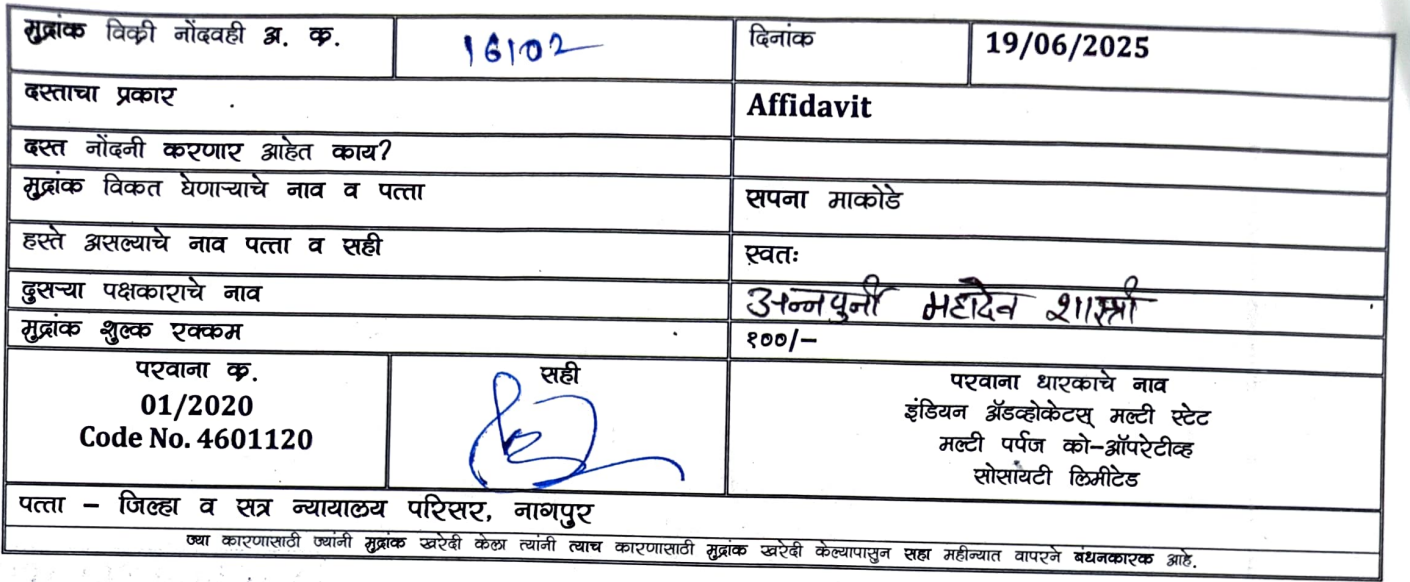 मुद्रांक विक्री नोंदवही अ. क्र. 16102 दिनांक 19/06/2025
दस्ताचा प्रकार Affidavit
दस्त नोंदनी करणार आहेत काय?
मुद्रांक विकत घेणाऱ्याचे नाव व पत्ता सपना माकोडे
हस्ते असल्याचे नाव पत्ता व सही स्वतः
दुसऱ्या पक्षकाराचे नाव अन्नपुर्ना महादेव शास्त्री
मुद्रांक शुल्क रक्कम १००/-
परवाना क्र.
01/2020
Code No. 4601120
सही
परवाना धारकाचे नाव
इंडियन ॲडव्होकेटस् मल्टी स्टेट
मल्टी पर्पज को-ऑपरेटीव्ह
सोसायटी लिमीटेड
पत्ता - जिल्हा व सत्र न्यायालय परिसर, नागपुर
ज्या कारणासाठी ज्यांनी मुद्रांक खरेदी केला त्यांनी त्याच कारणासाठी मुद्रांक खरेदी केल्यापासुन सहा महीन्यात वापरने बंधनकारक आहे.